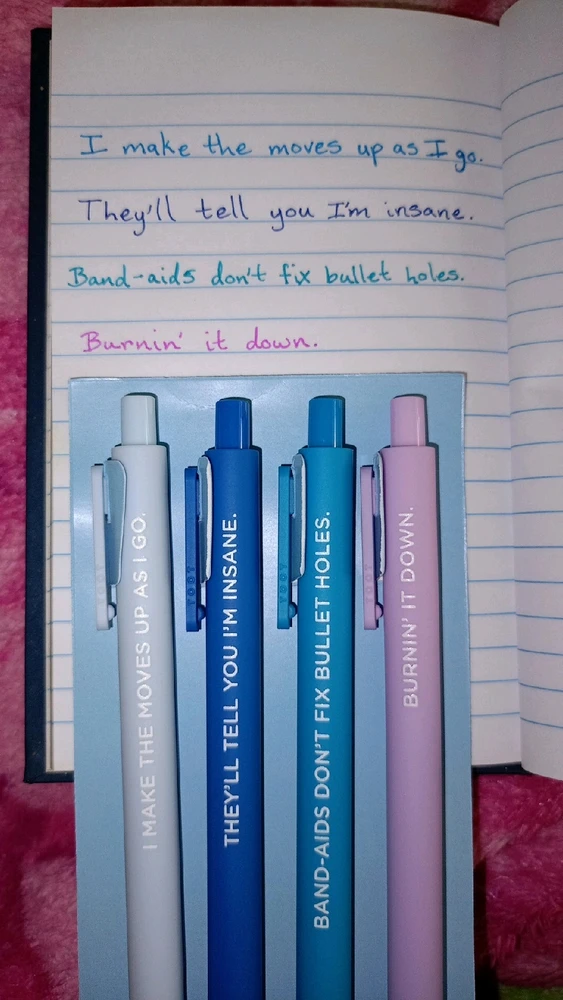 I make the moves up as I go.
They'll tell you I'm insane.
Band-aids don't fix bullet holes.
Burnin' it down.
I MAKE THE MOVES UP AS I GO.
THEY'LL TELL YOU I'M INSANE.
BAND-AIDS DON'T FIX BULLET HOLES.
BURNIN' IT DOWN.